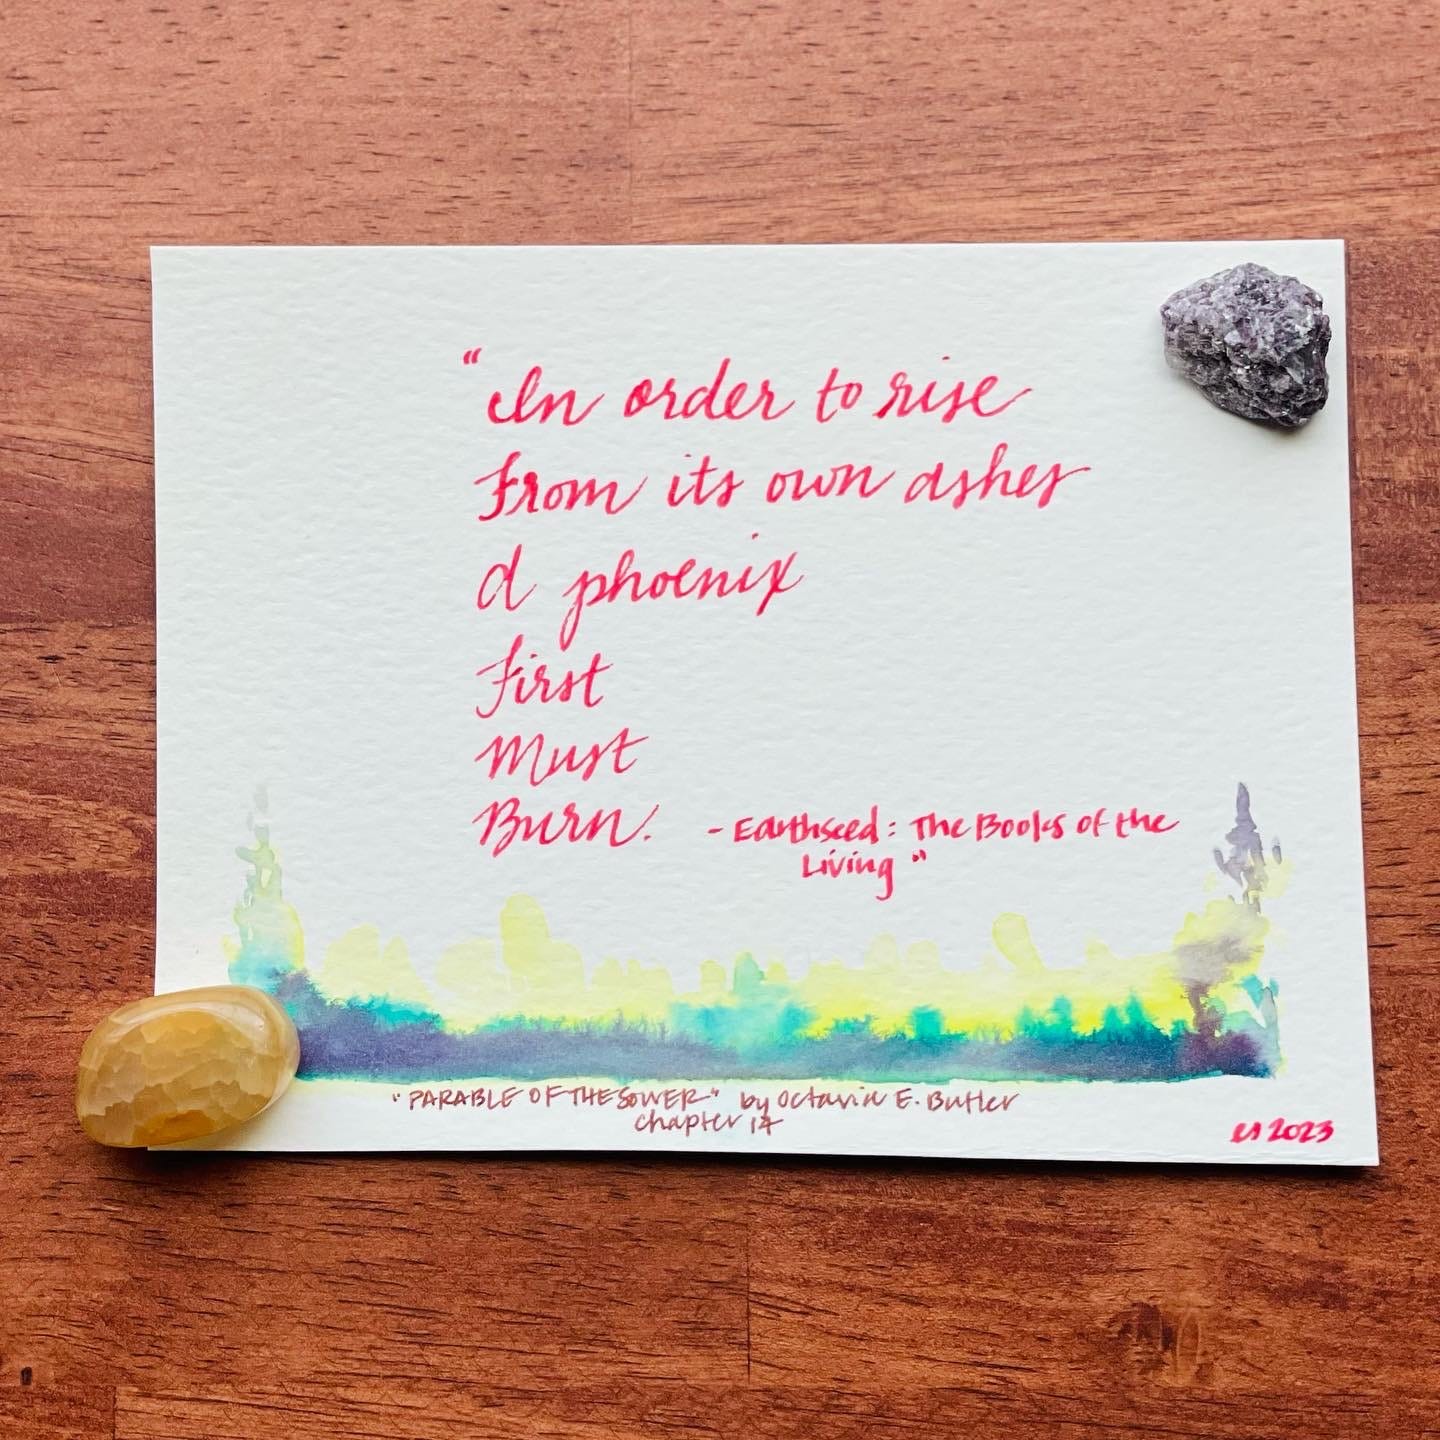 "In order to rise
From its own ashes
a phoenix
First
Must
Burn.
- Earthseed: The Books of the
Living"
"PARABLE OF THE SOWER" by Octavia E. Butler
chapter 14
es 2023